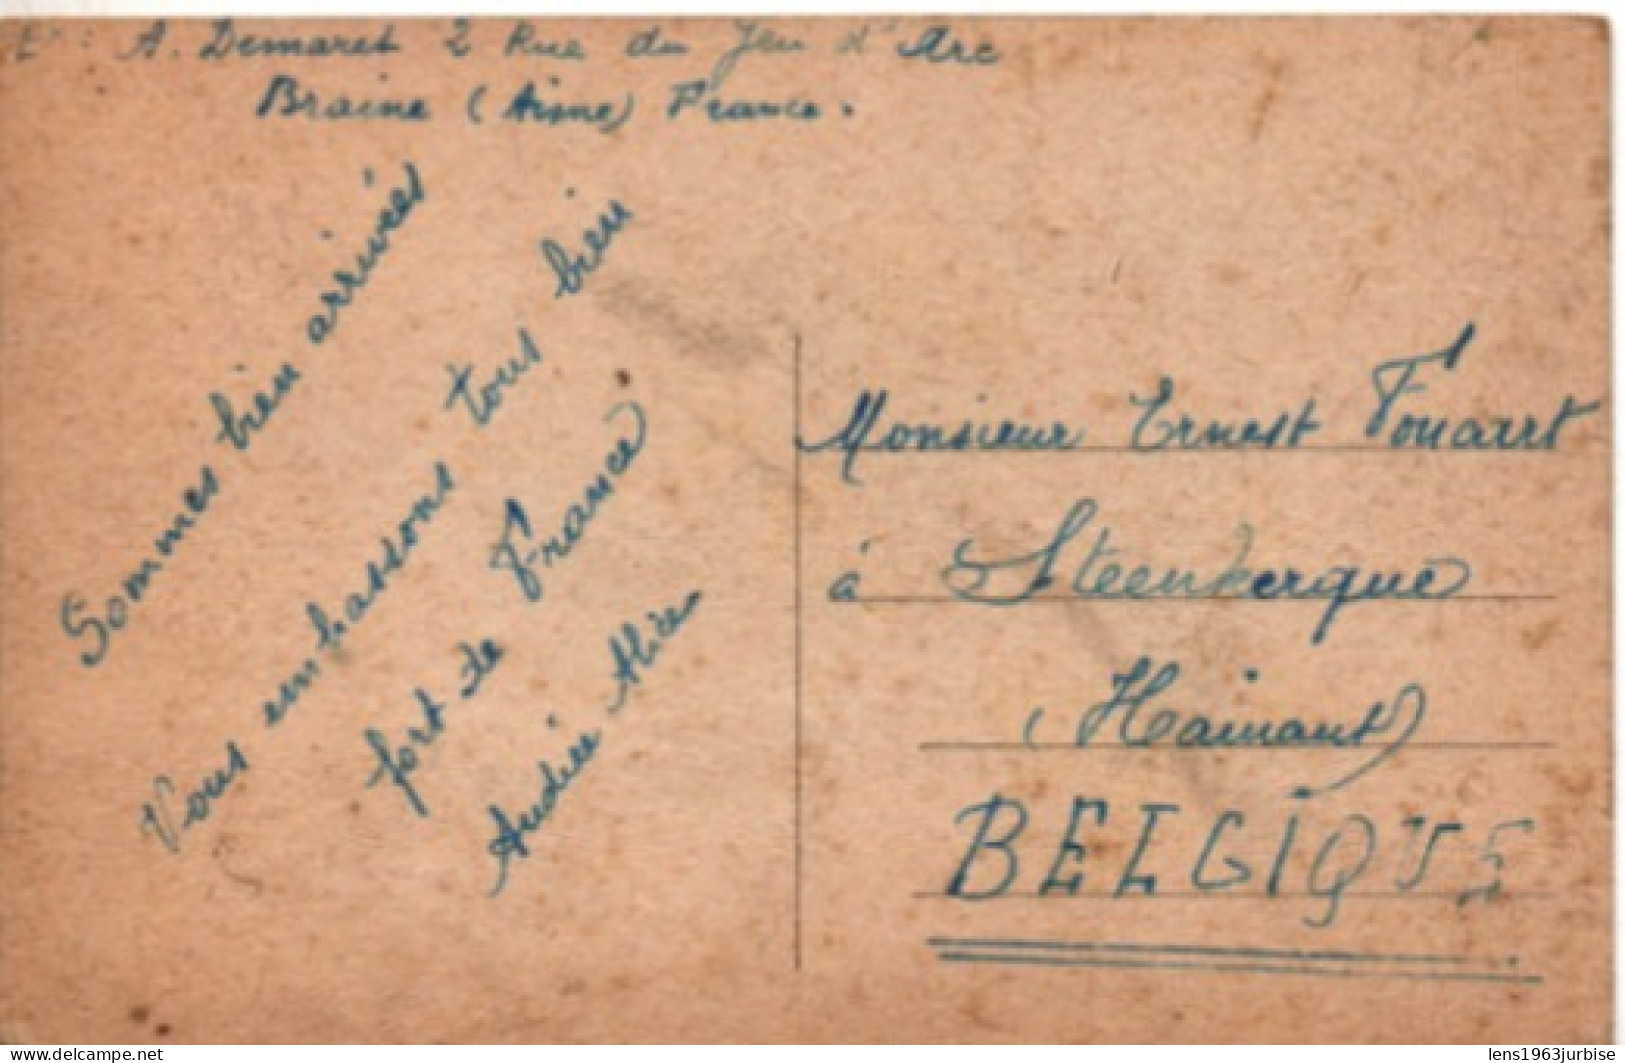 E : A. Demaret 2 Rue du Jeu d'Arc
Braine (Aisne) France.
Sommes bien arrivées
Vous embassons tous bien
fort de France
Andrée Alice
Monsieur Ernest Fouart
à Steenkerque
(Hainaut)
BELGIQUE
delcampe.net
lens1963jurbise